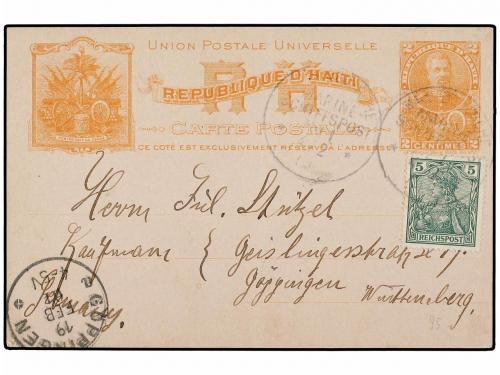 Union Postale Universelle
RH
REPUBLIQUE D'HAITI
CARTE POSTALE
CE COTÉ EST EXCLUSIVEMENT RÉSERVÉ À L'ADRESSE
2 CENTIMES 2
5 5
REICHSPOST
Herrn Jul. Stützel
Kaufmann
Geislingerstrasse
Göppingen
Württemberg.
Germany.
GÖPPINGEN
19 FEB